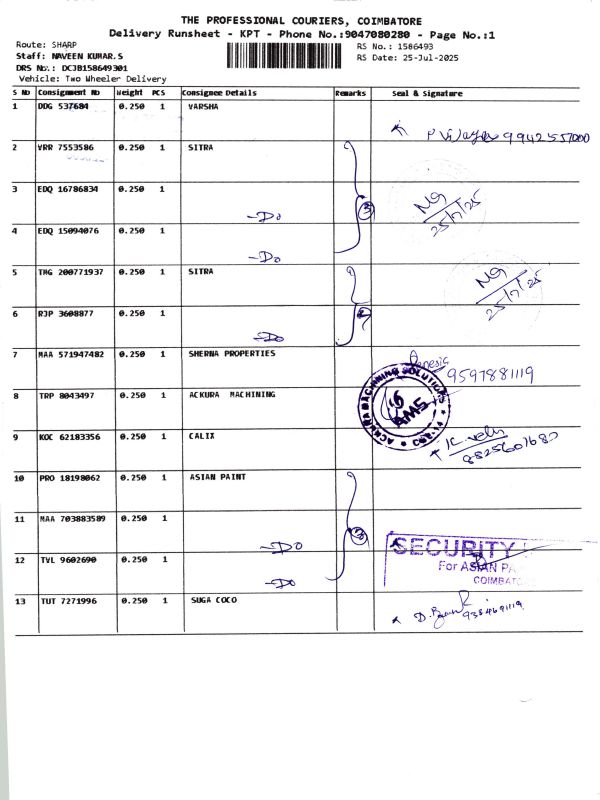 THE PROFESSIONAL COURIERS, COIMBATORE
Delivery Runsheet - KPT - Phone No.:9047080280 - Page No.:1
Route: SHARP
RS No.: 1586493
Staff: NAVEEN KUMAR.S
RS Date: 25-Jul-2025
DRS No.: DCJB158649301
Vehicle: Two Wheeler Delivery
S No Consignment No Weight PCS Consignee Details Remarks Seal & Signature
1 DDG 537684 0.250 1 VARSHA
9942557000
2 VRR 7553586 0.250 1 SITRA
3 EDQ 16786834 0.250 1
-Do 3 25/7/25
4 EDQ 15094076 0.250 1
-Do
5 TMG 200771937 0.250 1 SITRA
25/7/25
6 RJP 3608877 0.250 1
-Do 2
7 MAA 571947482 0.250 1 SHERNA PROPERTIES
9597881119
8 TRP 8043497 0.250 1 ACKURA MACHINING
ACKURA MACHINING SOLUTIONS
AMS
9 KOC 62183356 0.250 1 CALIX
10 PRO 18198062 0.250 1 ASIAN PAINT
11 MAA 703883589 0.250 1
-Do 3 SECURITY
12 TVL 9602690 0.250 1 For ASIAN PA
-Do COIMBATO
13 TUT 7271996 0.250 1 SUGA COCO